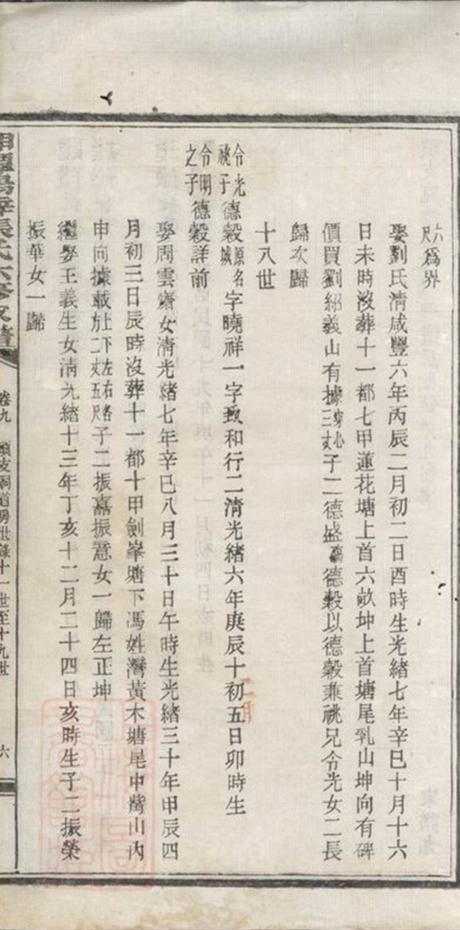 六尺爲界
娶劉氏清咸豐六年丙辰二月初二日酉時生光緒七年辛巳十月十六
日未時沒葬十一都七甲蓮花塘上首六畝坤上首塘尾乳山坤向有碑
價買劉紹義山有據穿心三丈子二德盛殤德穀以德穀兼祧兄令光女二長
歸次歸
十八世
令光祧子令明之子德穀原名字曉祥一字致和行二清光緒六年庚辰十初五日卯時生
德穀詳前
娶周雲齋女清光緒七年辛巳八月三十日午時生光緒三十年甲辰四
月初三日辰時沒葬十一都十甲劍峯塘下馮姓灣黃木塘尾中嘴山內
申向據載上二丈下左右各五尺子二振嘉振意女一歸左正坤
繼娶王義生女清光緒十三年丁亥十二月二十四日亥時生子二振榮
振華女一歸
張氏六修支譜
卷九
世錄十一世至十九世
六